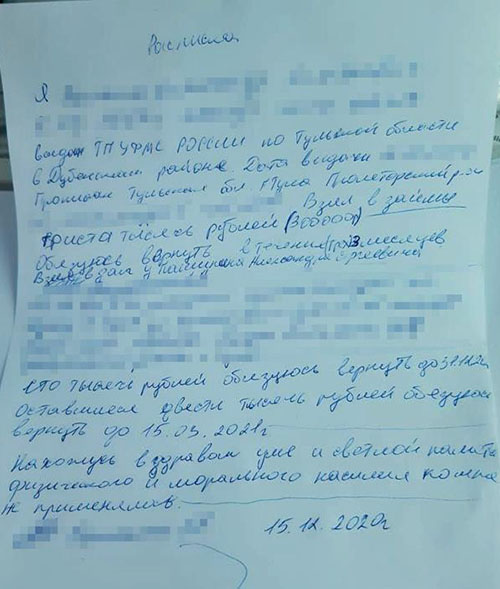 Расписка
Я
выдан ТП УФМС РОССИИ по Тульской области
в Дубенском районе. Дата выдачи
Тульская обл. г Тула Пролетарский р-н
Взял в займы
триста тысяч рублей (300000)
Обязуюсь вернуть в течении трёх месяцев
Взял в долг у Александра Сергеевича
сто тысяч рублей обязуюсь вернуть до 31.12.20
Оставшиеся двести тысяч рублей обязуюсь
вернуть до 15.03.2021г
Нахожусь в здравом уме и светлой памяти
физического и морального насилия ко мне
не применялось.
15.12.2020г